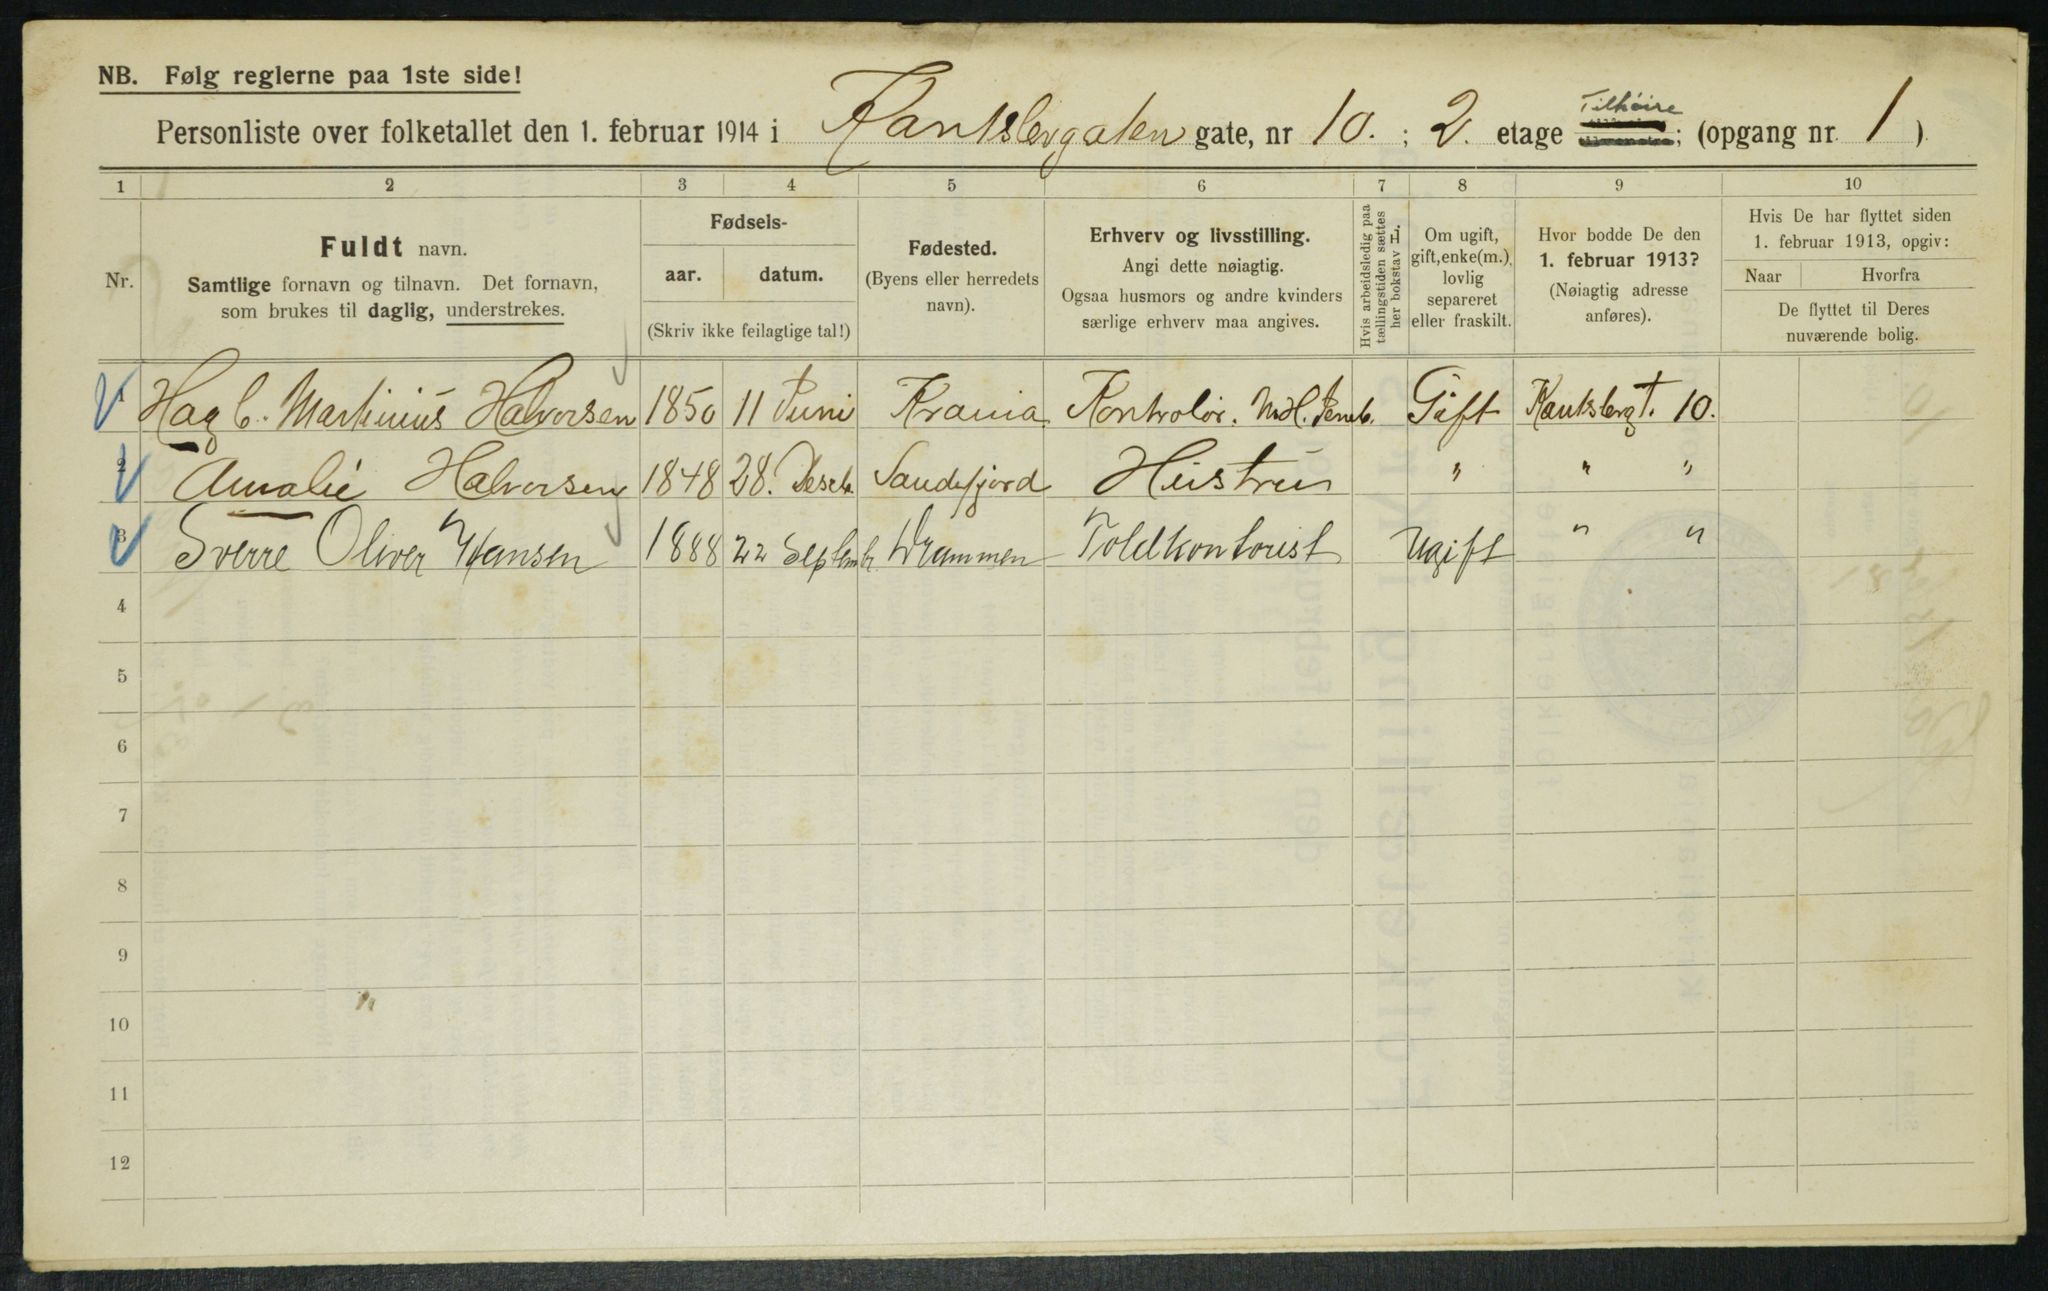 NB. Følg reglerne paa 1ste side!
Tilhöire
Personliste over folketallet den 1. februar 1914 i Kantslergaten gate, nr 10. ; 2. etage ; (opgang nr. 1 ).
1 2 3 4 5 6 7 8 9 10
Nr.
Fuldt navn.
Samtlige fornavn og tilnavn. Det fornavn,
som brukes til daglig, understrekes.
Fødsels-
aar. datum.
(Skriv ikke feilagtige tal!)
Fødested.
(Byens eller herredets
navn).
Erhverv og livsstilling.
Angi dette nøiagtig.
Ogsaa husmors og andre kvinders
særlige erhverv maa angives.
Hvis arbeidsledig paa
tællingstiden sættes
her bokstav L
Om ugift,
gift, enke(m.),
lovlig
separeret
eller fraskilt.
Hvor bodde De den
1. februar 1913?
(Nøiagtig adresse
anføres).
Hvis De har flyttet siden
1. februar 1913, opgiv:
Naar Hvorfra
De flyttet til Deres
nuværende bolig.
1 Hag C. Martinius Halvorsen 1850 11 Juni Krania Kontrolör. Gift Kantslergt. 10.
2 Amalie Halvorsen 1848 28. Descb. Sandefjord Hustru " " "
3 Sverre Oliver Hansen 1888 22 Septembr Drammen Toldkontorist Ugift " "
4
5
6
7
8
9
10
11
12